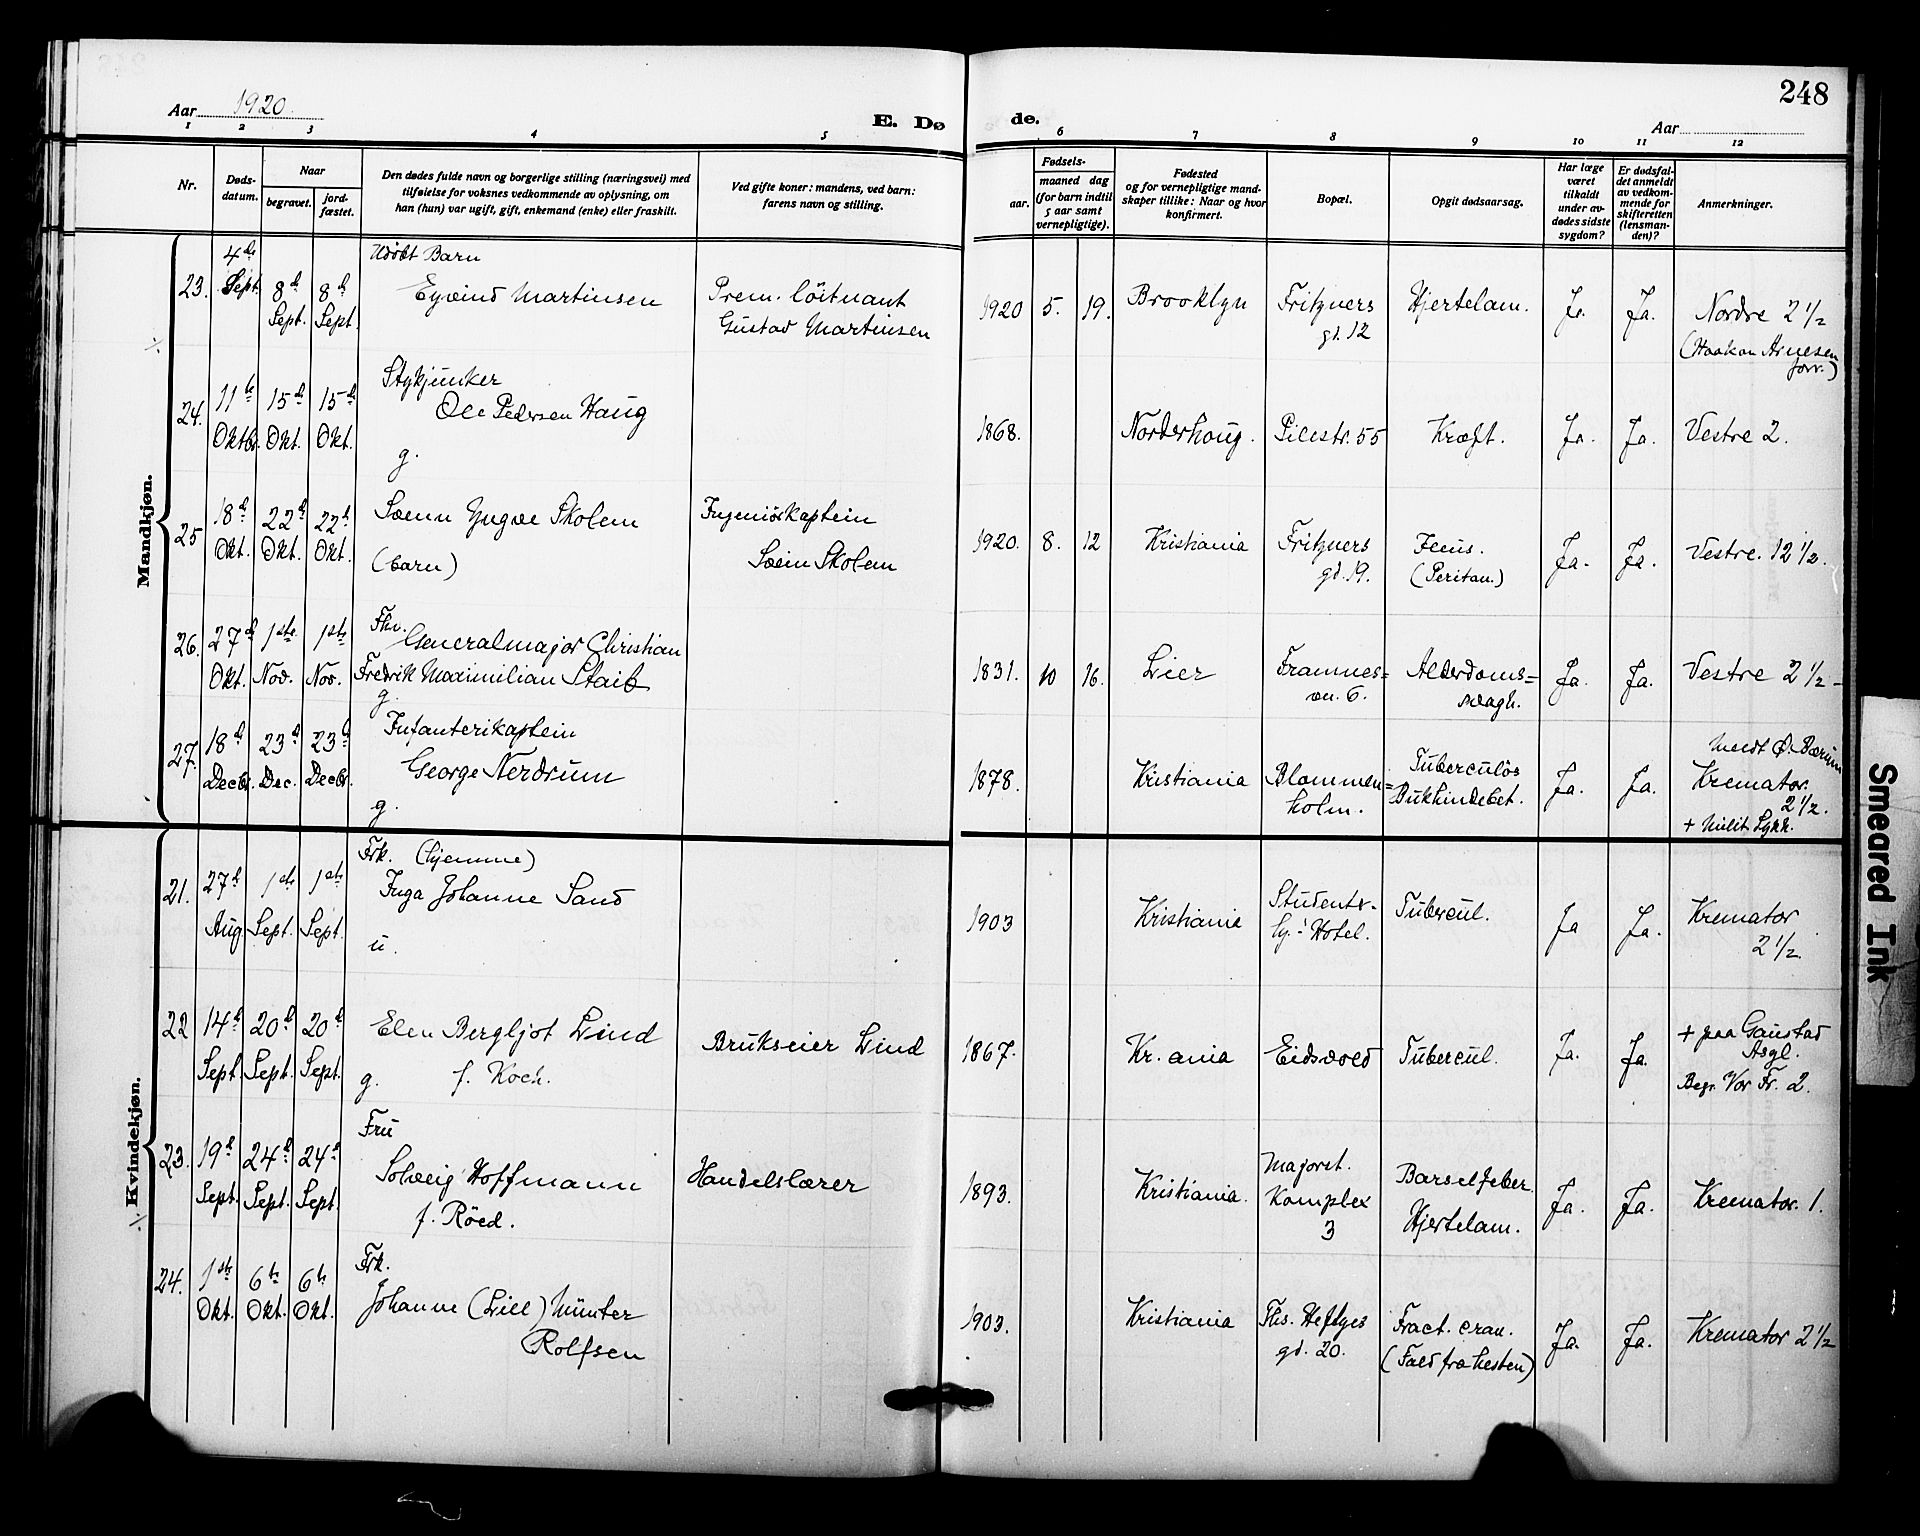 Aar 1920.
E. Dø
de.
Aar
248
1 2 3 4 5 6 7 8 9 10 11 12
Nr.
Døds-
datum.
Naar
begravet.
jord-
fæstet.
Den dødes fulde navn og borgerlige stilling (næringsvei) med
tilføielse for voksnes vedkommende av oplysning, om
han (hun) var ugift, gift, enkemand (enke) eller fraskilt.
Ved gifte koner: mandens, ved barn:
farens navn og stilling.
Fødsels-
aar.
maaned dag
(for barn indtil
5 aar samt
vernepligtige).
Fødested
og for vernepligtige mand-
skaper tillike: Naar og hvor
konfirmert.
Bopæl.
Opgit dødsaarsag.
Har læge
været
tilkaldt
under av-
dødes sidste
sygdom?
Er dødsfal-
det anmeldt
av vedkom-
mende for
skifteretten
(lensman-
den)?
Anmerkninger.
Mandkjøn.
23. 4de Sept. 8d Sept. 8d Sept.
Udöbt Barn
Eyvind Martinsen
Prem. löitnant
Gustav Martinsen
1920 5. 19. Brooklyn
Fritzners
gd. 12
Hjertelam. Ja. Ja.
Nordre 2 1/2
(Haakon Arnesen
forr.)
24. 11te Oktbr. 15d Okt. 15de Okt.
Stykjunker
Ole Pedersen Haug
g.
1868. Norderhoug. Pilestr. 55 Kræft. Ja. Ja. Vestre 2.
25 18d Okt. 22d Okt. 22d Okt.
Svenn Yngve Skolem
(barn)
Ingeniörkaptein
Svein Skolem
1920. 8. 12 Kristiania
Fritzners
gd. 19.
Ileus.
(Periton.)
Ja. Ja. Vestre. 12 1/2.
26. 27d Okt. 1ste Nov. 1ste Nov.
Fhv.
Generalmajor Christian
Fredrik Maximilian Staib
g.
1831. 10 16. Lier
Framnes=
vn. 6.
Alderdoms=
svagh.
Ja. Ja. Vestre 2 1/2 -
27. 18d Decbr. 23d Dec. 23d Decbr.
Infanterikaptein
George Nerdrum
g.
1878. Kristiania
Blommen=
holm.
Tuberculös
Bukhindebet.
Ja. Ja.
Meldt Ø. Bærum
Kremator.
2 1/2.
+ Milit Sykh.
Kvindekjøn.
21. 27d Aug 1ste Sept. 1ste Sept.
Frk. (hjemme)
Inga Johanne Sand
u.
1903 Kristiania
Studenter-
hj.-Hotel.
Tubercul. Ja Ja.
Kremator
2 1/2.
22 14d Sept 20d Sept. 20d Sept.
Elen Bergljot Lind
g. f. Koch.
Brukseier Lind
1867. Kr. ania Eidsvold Tubercul. Ja. Ja.
+ paa Gaustad
Asyl.
Begr. Vor Fr. 2.
23. 19d Sept. 24d Sept. 24d Sept.
Fru
Solveig Hoffmann
f. Röed.
Handelslærer
1893. Kristiania.
Majorst.
Komplex
3
Barselfeber.
Hjertelam.
Ja. Ja. Kremator. 1.
24. 1ste Okt. 6te Okt. 6te Okt.
Frk.
Johanne (Lill) Münter
Rolfsen
1903. Kristiania
Ths. Heftyes
gd. 20.
Fract. cran.
(Fald fra hesten)
Ja. Ja. Kremator 2 1/2
Smeared Ink